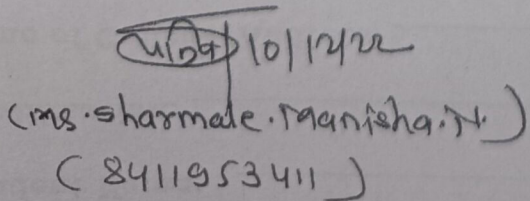 10/12/22
(ms. sharmale. Manisha. N.)
(8411953411)